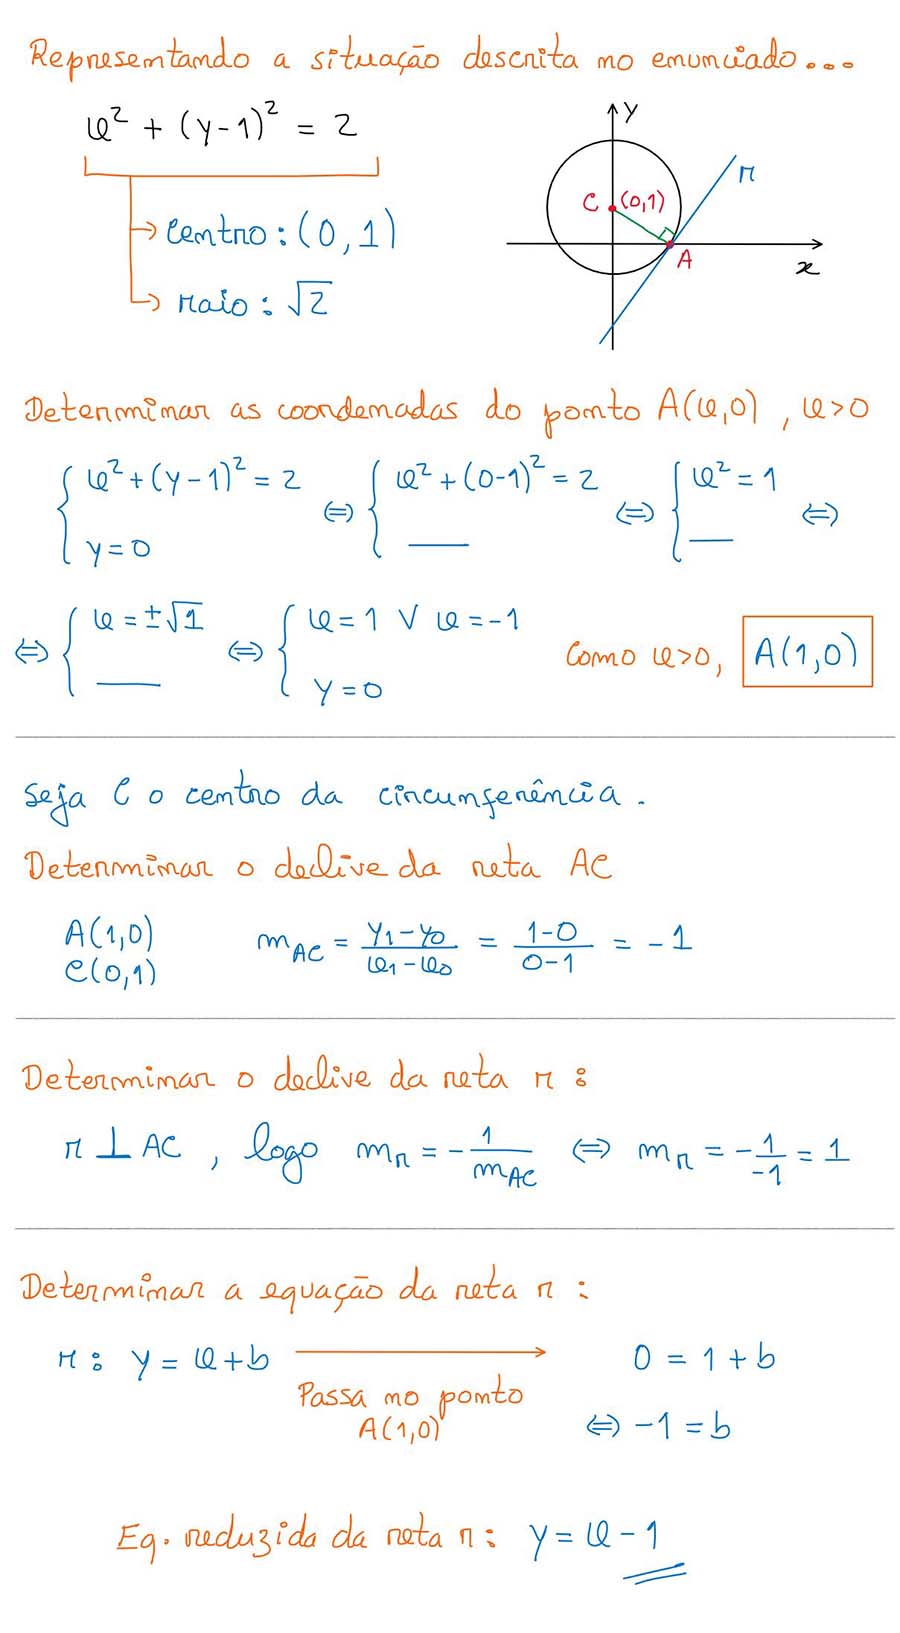 Representando a situação descrita no enunciado...
x² + (y-1)² = 2
y
r
C (0,1)
→ Centro: (0,1)
A
x
→ raio: √2
Determinar as coordenadas do ponto A(x,0), x>0
{ x²+(y-1)² = 2 ⇔ { x²+(0-1)² = 2 ⇔ { x² = 1 ⇔
y=0 —— ——
⇔ { x = ±√1 ⇔ { x = 1 ∨ x = -1 Como x>0, A(1,0)
—— y=0
Seja C o centro da circunferência.
Determinar o declive da reta AC
A(1,0) m_AC = (y₁-y₀)/(x₁-x₀) = (1-0)/(0-1) = -1
C(0,1)
Determinar o declive da reta r:
r ⊥ AC, logo m_r = -1/m_AC ⇔ m_r = -1/-1 = 1
Determinar a equação da reta r:
r: y = x+b → 0 = 1+b
Passa no ponto
A(1,0) ⇔ -1 = b
Eq. reduzida da reta r: y = x - 1